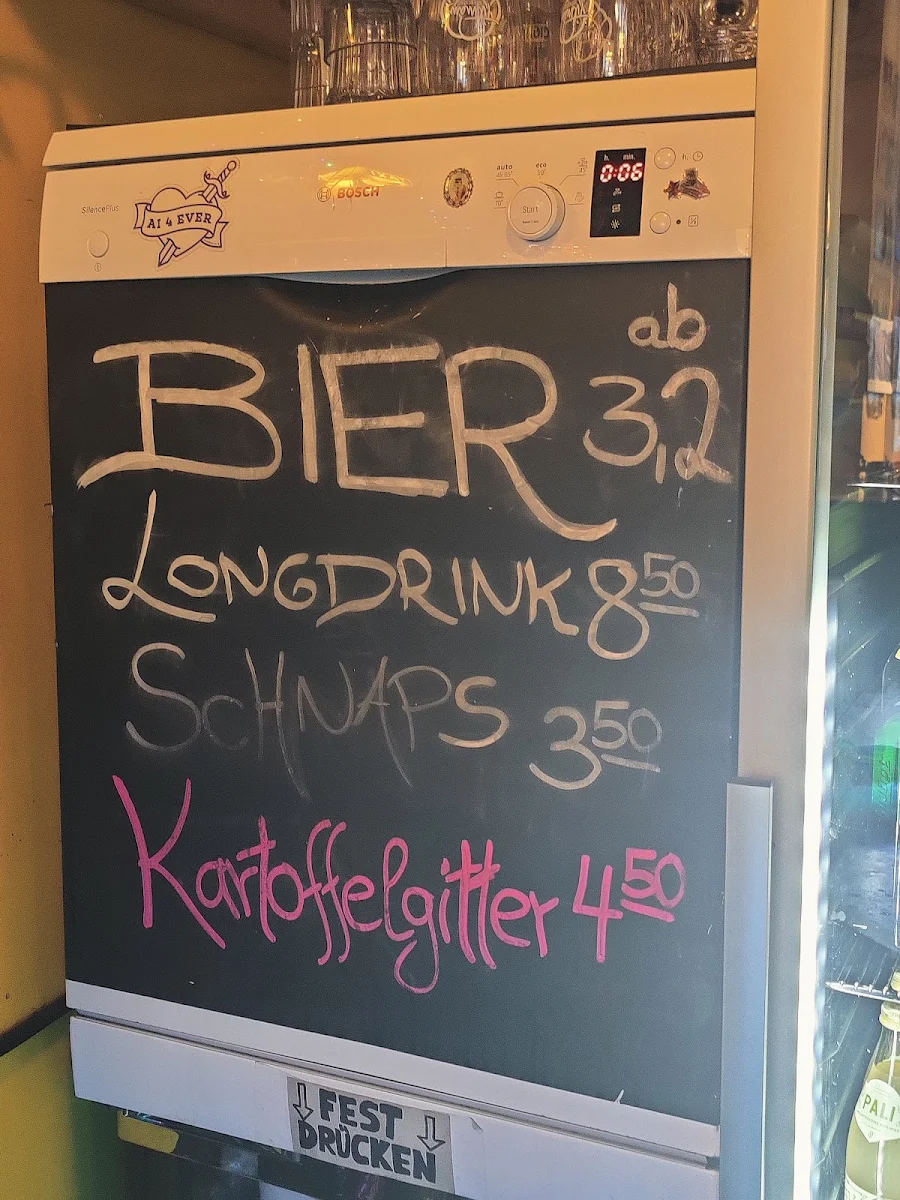 SilencePlus
AI 4 EVER
BOSCH
auto
45-65°
eco
50°
Start
h. min.
0:06
h.
BIER ab 3,2
LONGDRINK 8 50
SCHNAPS 3 50
Kartoffelgitter 4 50
FEST
DRÜCKEN
PALI